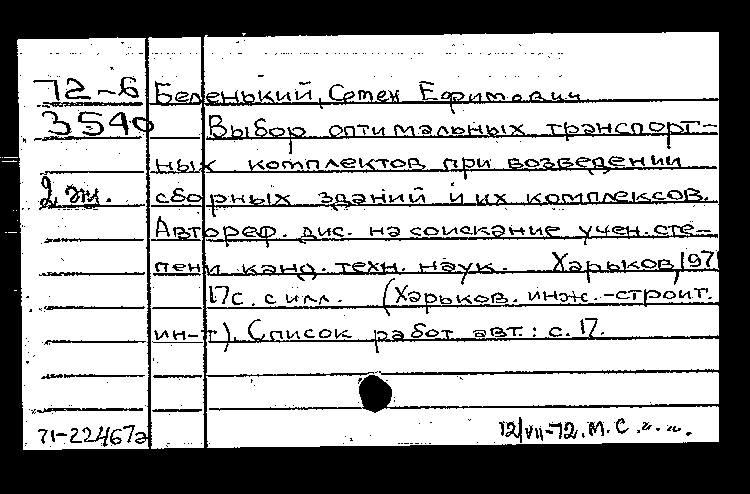 72-6 Беленький, Семен Ефимович
3540 Выбор оптимальных транспорт-
ных комплектов при возведении
2 эк. сборных зданий и их комплексов.
Автореф. дис. на соискание учен. сте-
пени канд. техн. наук. Харьков, 197
17с. с илл. (Харьков. инж.-строит.
ин-т). Список работ авт.: с. 17.
71-22467а 12/VII-72. М. С.